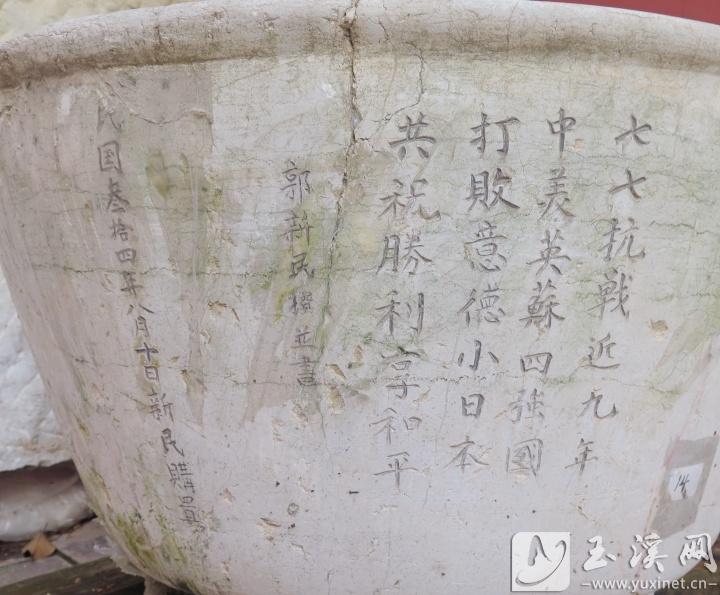 七七抗戰近九年
中美英蘇四強國
打敗意德小日本
共祝勝利享和平
郭新民撰並書
民国叁拾四年八月十日新民購置
14
玉溪网
www.yuxinet.cn